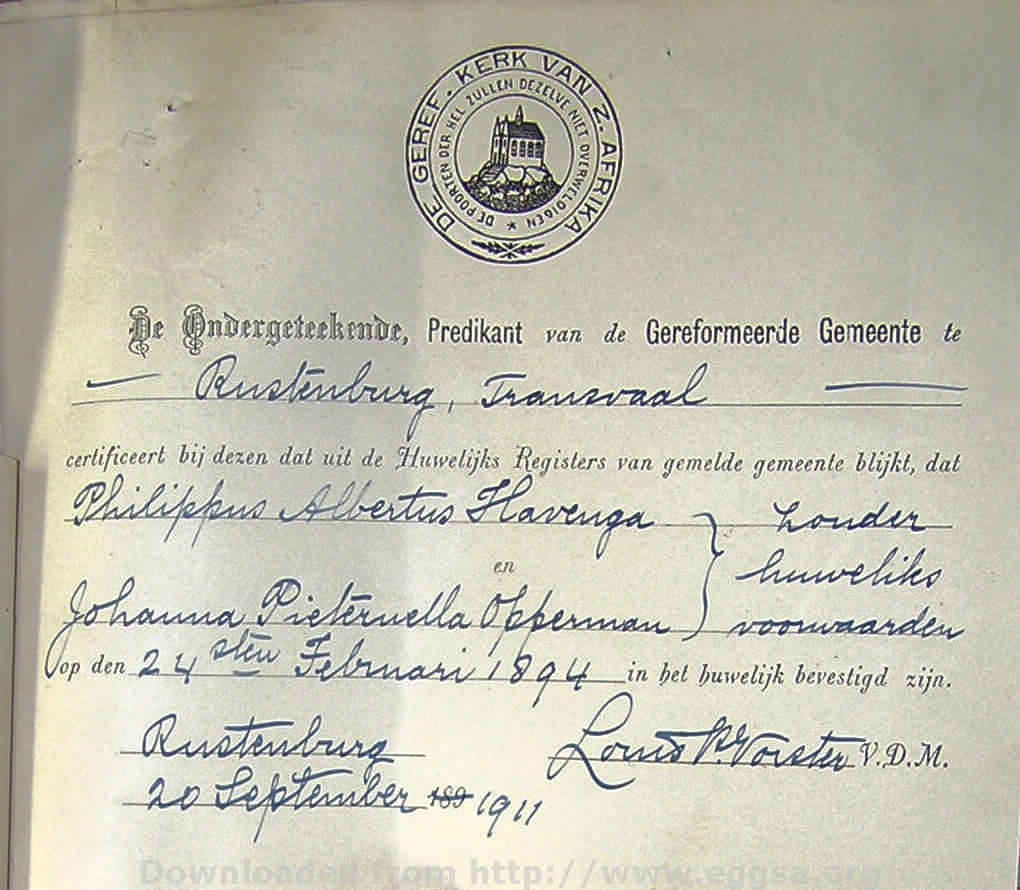 DE GEREF. KERK VAN Z. AFRIKA
DE POORTEN DER HEL ZULLEN DEZELVE NIET OVERWELDIGEN *
De Ondergeteekende, Predikant van de Gereformeerde Gemeente te
Rustenburg, Transvaal
certificeert bij dezen dat uit de Huwelijks Registers van gemelde gemeente blijkt, dat
Philippus Albertus Havenga } zonder
en huweliks
Johanna Pieternella Opperman voorwaarden
op den 24sten Februari 1894 in het huwelijk bevestigd zijn.
Rustenburg Louis P. Vorster V.D.M.
20 September 189 1911
Downloaded from http://www.eggsa.org